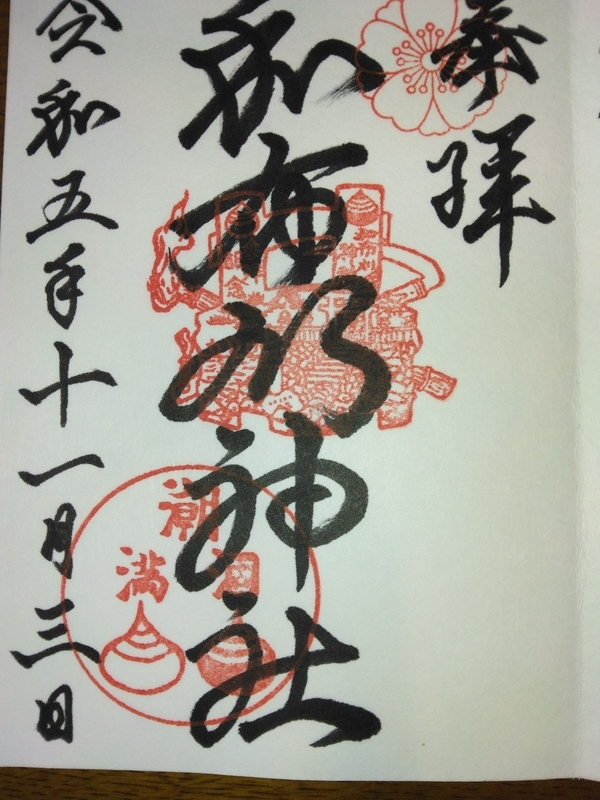 奉拝
和布刈神社
潮
満
令和五年十一月三日